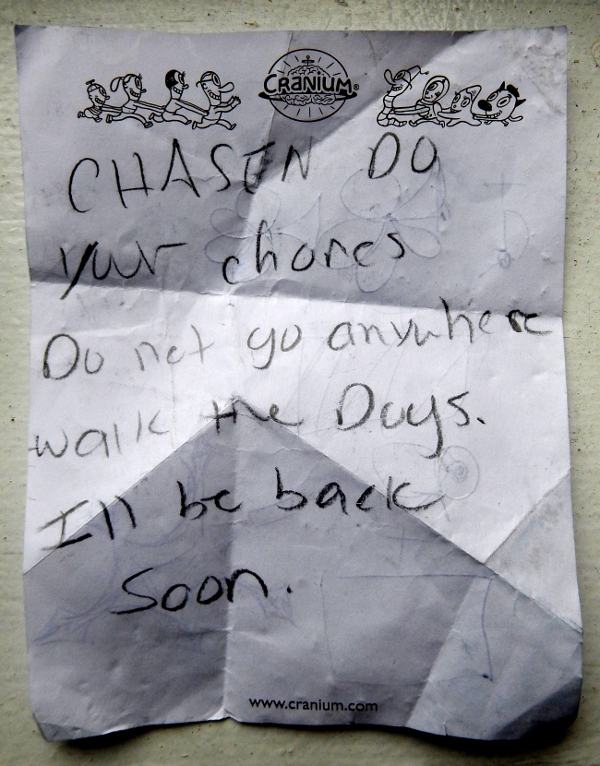 CRANIUM®
CHASEN DO
your chores
Do not go anywhere
walk the Dogs.
I'll be back
Soon.
www.cranium.com